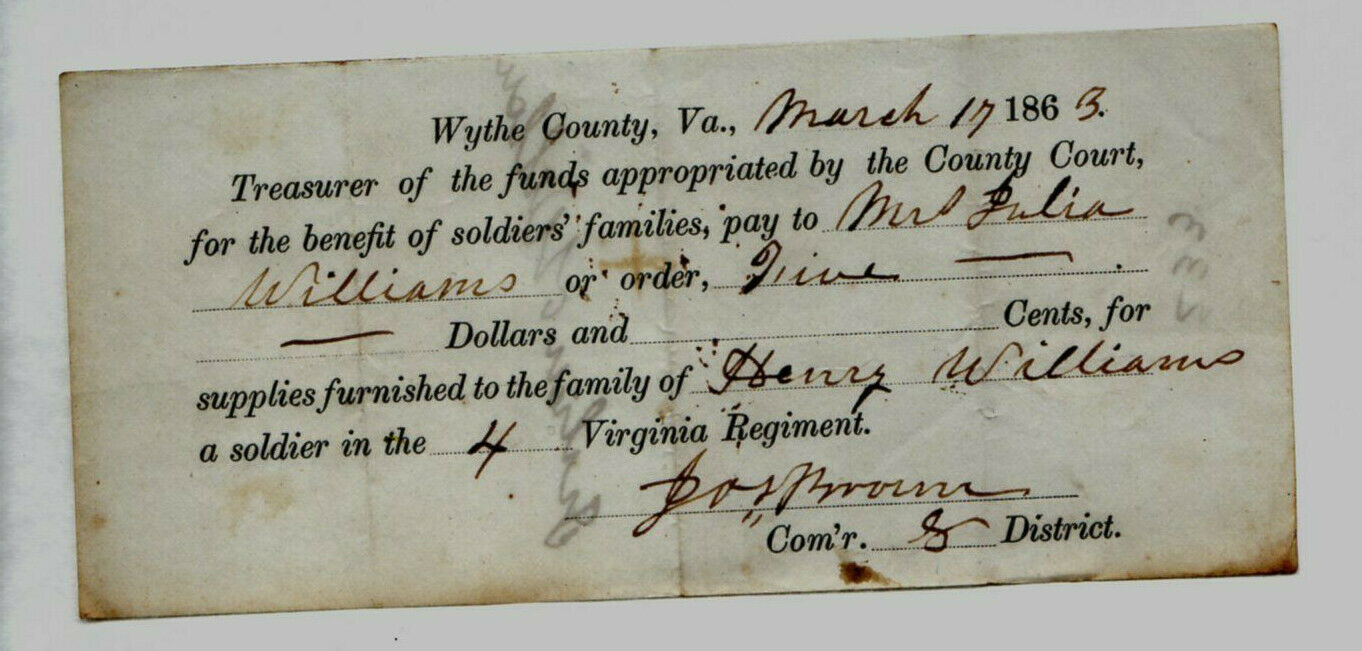 Wythe County, Va., March 17 1863.
Treasurer of the funds appropriated by the County Court,
for the benefit of soldiers' families, pay to Mrs Julia
Williams or order, Five —
— Dollars and Cents, for
supplies furnished to the family of Henry Williams
a soldier in the 4 Virginia Regiment.
Jos Brown
Com'r. 8 District.